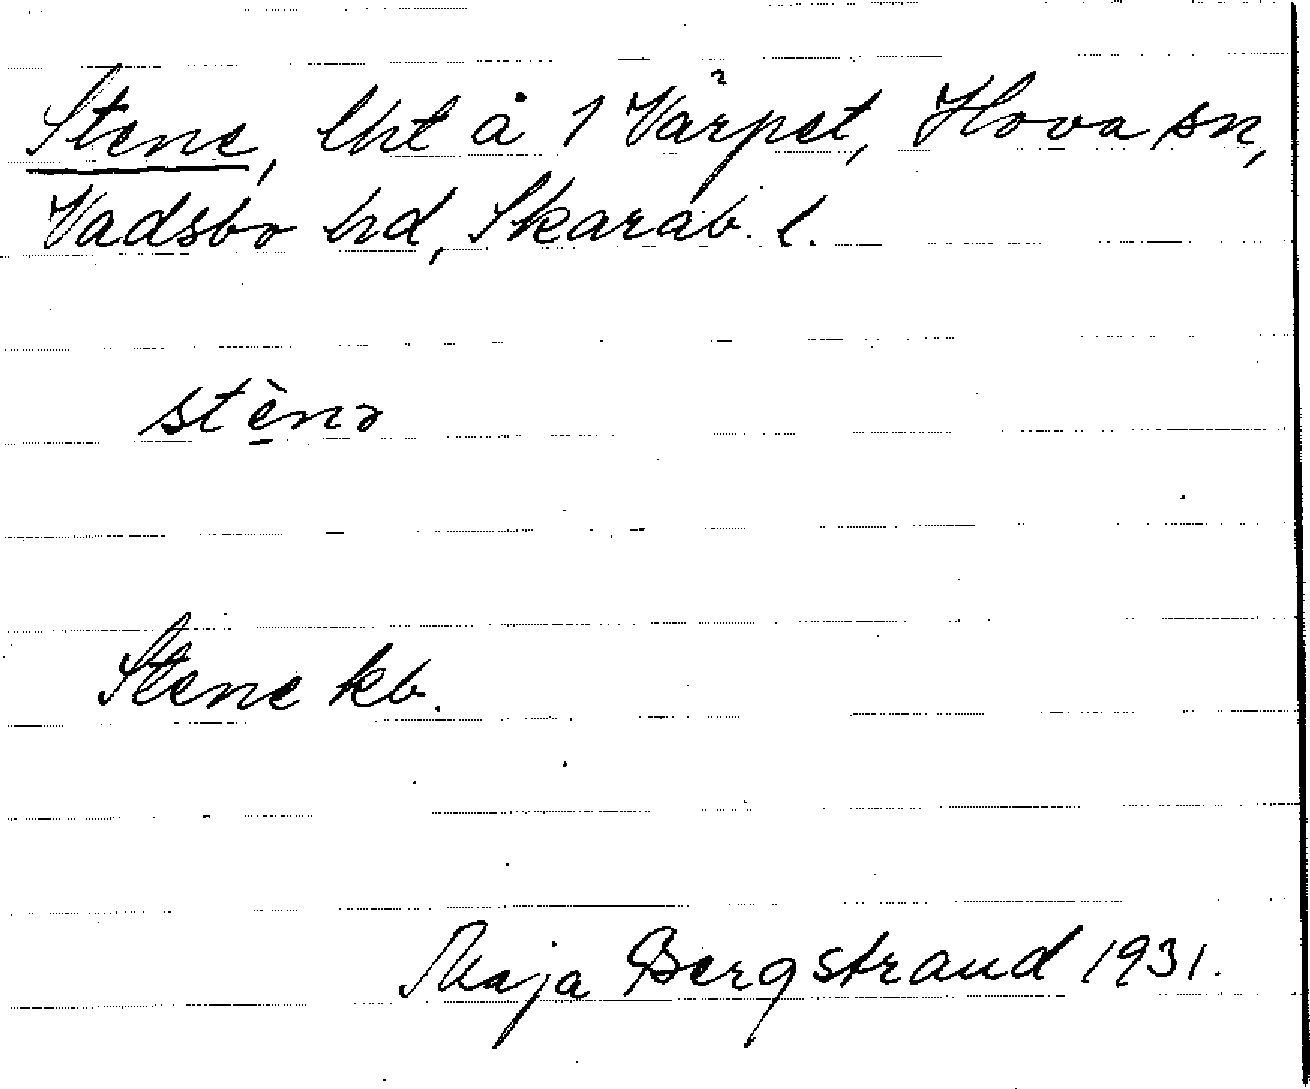 Stene, lht å 1 Vårpet, Hova sn,
Vadsbo hd, Skarab. l.
stè̠nə
Stene kb.
Maja Bergstrand 1931.